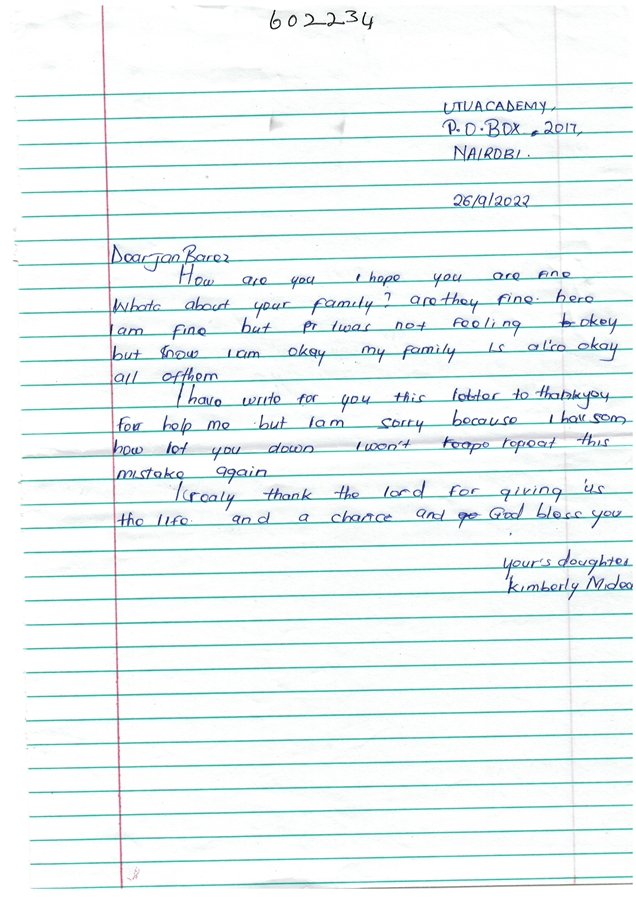 602234
UTUACADEMY,
P.O.BOX . 2017,
NAIROBI.
26/9/2022
Dearjan Barez
How are you I hope you are fine
Whats about your family? are they fine. here
I am fine but I was not feeling okey
but know I am okay my family is also okay
all ofthem
I have write for you this letter to thankyou
for help me but I am sorry because I hav som
how let you down I won't repeat this
mistake again
I realy thank the lord for giving us
the life. and a chance and God bless you
your's doughter
Kimberly